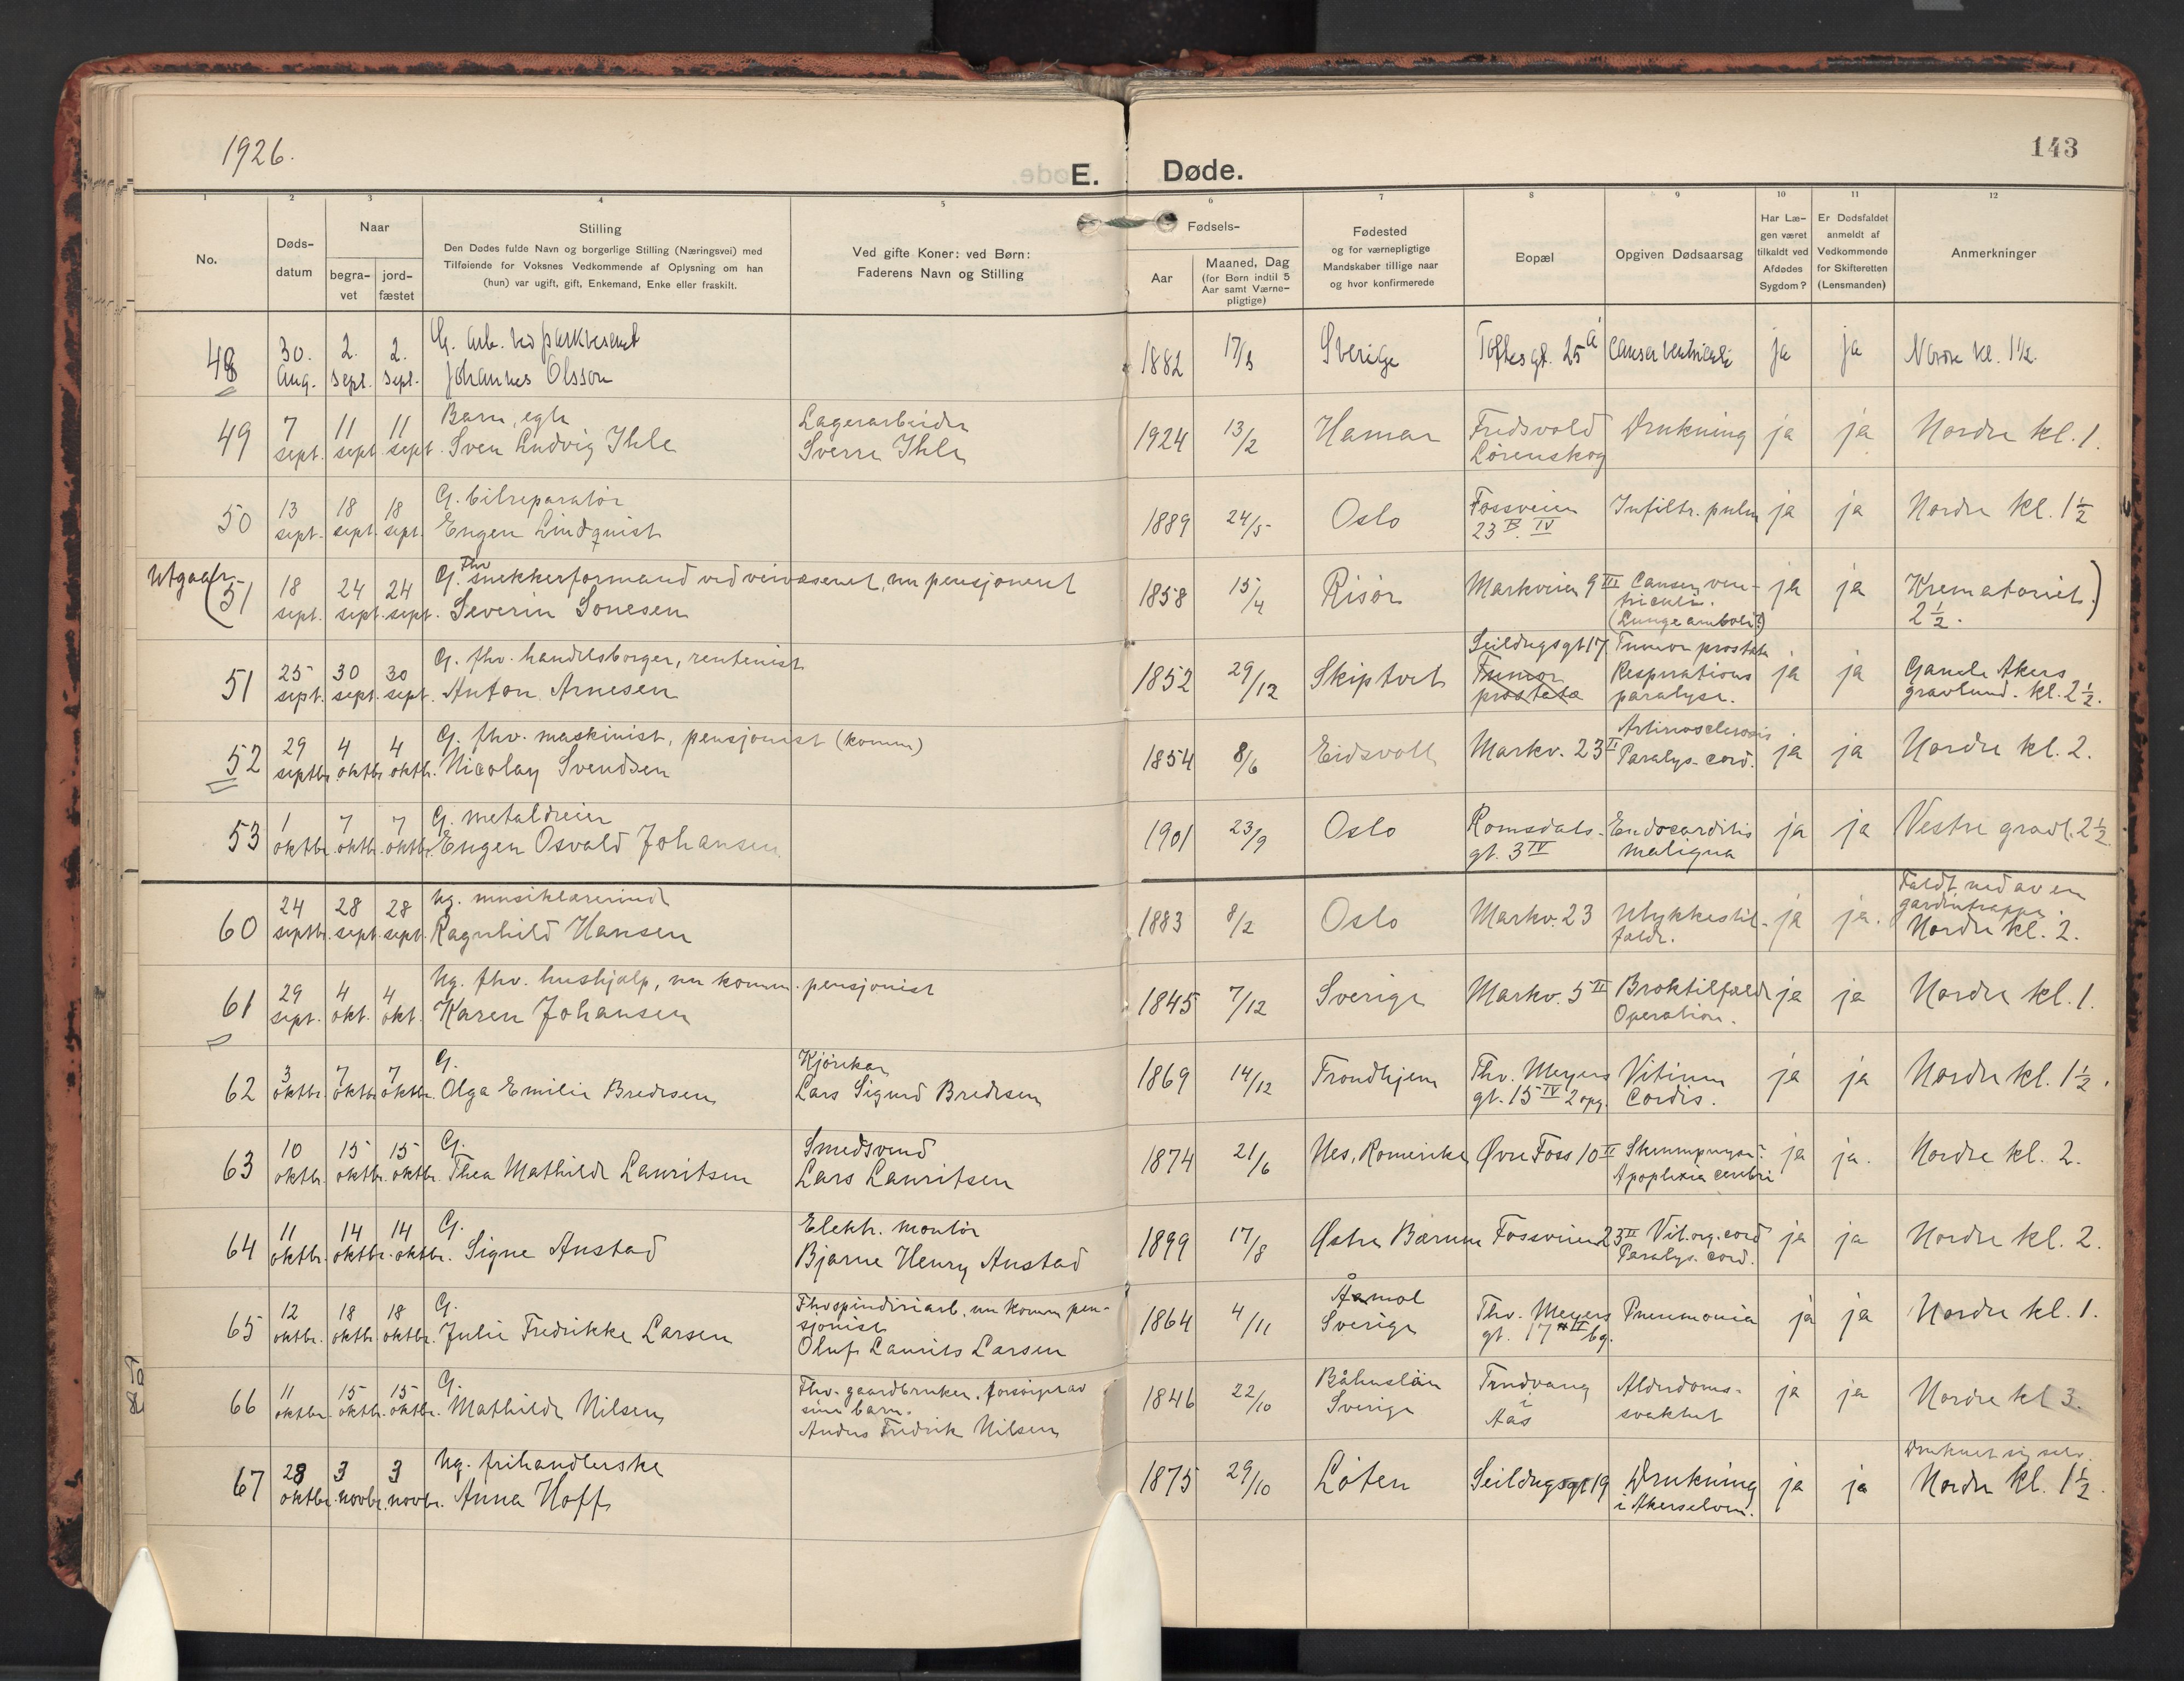 1926.
143
E. Døde.
1 2 3 4 5 6 7 8 9 10 11 12
No.
Døds-
datum
Naar
begra-
vet
jord-
fæstet
Stilling
Den Dødes fulde Navn og borgerlige Stilling (Næringsvei) med
Tilføiende for Voksnes Vedkommende af Oplysning om han
(hun) var ugift, gift, Enkemand, Enke eller fraskilt.
Ved gifte Koner: ved Børn:
Faderens Navn og Stilling
Fødsels-
Aar
Maaned, Dag
(for Børn indtil 5
Aar samt Værne-
pligtige)
Fødested
og for værnepligtige
Mandskaber tillige naar
og hvor konfirmerede
Bopæl
Opgiven Dødsaarsag
Har Læ-
gen været
tilkaldt ved
Afdødes
Sygdom?
Er Dødsfaldet
anmeldt af
Vedkommende
for Skifteretten
(Lensmanden)
Anmerkninger
48 30. aug. 2. sept. 2. sept. G. arb. ved parkvesenet
Johannes Olsson
1882 Sverige Toftesgt. 25 a Cancer ventriculi ja ja Nordre kl. 1 1/2.
49 7 sept. 11 sept. 11 sept. Barn, egte
Sven Ludvig Ihle
Lagerarbeider
Sverre Ihle
1924 13/2 Hamar Fredsvold
Lørenskog
Drukning ja ja Nordre kl. 1.
50 13 sept. 18 sept. 18 sept. G. bilreparatør
Eugen Lindquist
1889 24/5 Oslo Fossveien
23 B. IV
Infiltr. pulm ja ja Nordre kl. 1 1/2
Utgaar
(51 18 sept. 24 sept. 24 sept. G. Thv snekkerformand ved veivæsenet, nu pensjoneret
Severin Sonesen
1858 15/4 Risør Markveien 9 III Cancer ven-
triculi.
(Lungeemboli?)
ja ja Krematoriet.)
2 1/2.
51 25 sept. 30 sept. 30 sept. G. fhv. handelsborger, rentenist
Anton Arnesen
1852 29/12 Skiptvet Seildugsgt 17
Tumor
prostata
Tumor prostata
Respirations
paralyse.
ja ja Gamle Akers
gravlund. kl. 2 1/2.
52 29 septbr. 4 oktbr. 4 oktbr. G. fhv. maskinist, pensjonist (komm)
Nicolay Svendsen
1854 8/6 Eidsvoll Markv. 23 II Arteriosclerosis
Paralys. cord.
ja ja Nordre kl. 2.
53 1 oktbr. 7 oktbr. 7 oktbr. G. metaldreier
Eugen Osvald Johansen
1901 23/9 Oslo Romsdals-
gt. 3 IV
Endocarditis
maligna
ja ja Vestre gravl. 2 1/2
60 24 septbr. 28 sept. 28 sept. Ug. musiklærerinde
Ragnhild Hansen
1883 8/2 Oslo Markv. 23 Ulykkestil-
fælde.
ja ja. Faldt ned av en
gardintrappe.
Nordre kl. 2.
61 29 sept. 4 okt. 4 okt. Ug. fhv. hushjælp, nu komm. pensjonist
Karen Johansen
1845 7/12 Sverige Markv. 5 II Broktilfælde
Operation.
ja ja Nordre kl. 1.
62 3 oktbr. 7 oktbr. 7 oktbr. G.
Olga Emilie Bredesen
Kjørekar
Lars Sigurd Bredesen
1869 14/12 Trondhjem Thv. Meyers
gt. 15 IV 2 opg.
Vitium
Cordis.
ja ja Nordre kl. 1 1/2.
63 10 oktbr. 15 oktbr. 15 oktbr. G.
Thea Mathilde Lauritsen
Smedsvend
Lars Lauritsen
1874 21/6 Nes, Romerike Øvre Foss 10 II Skrumpnyre.
Apoplexia cerebri
ja ja. Nordre kl. 2.
64 11 oktbr. 14 oktbr. 14 oktbr. G.
Signe Anstad
Elektr. montør
Bjarne Henry Anstad
1899 17/8 Østre Bærum Fossveien 23 II Vit. org. cord
Paralys. cord.
ja ja Nordre kl. 2.
65 12 oktbr. 18 oktbr. 18 oktbr. G.
Julie Fredrikke Larsen
Fhv spinderiarb. nu komm pen-
sjonist
Oluf Laurits Larsen
1864 4/11 Åmol
Sverige
Thv. Meyers
gt. 17 IV bg.
Pneumonia ja ja Nordre kl. 1.
66 11 oktbr. 15 oktbr. 15 oktbr. G.
Mathilde Nilsen
Fhv. gaardbruker, forsørget av
sine barn.
Anders Fredrik Nilsen
1846 22/10 Båhuslän
Sverige
Trudvang
i
Aas
Alderdoms-
svakhet
ja ja Nordre kl 3.
67 28 oktbr. 3 novbr. 3 novbr. Ug. frihandlerske
Anna Hoff
1875 29/10 Løten Seildugsgt 19 Drukning
i Akerselven.
ja ja Druknet sig selv.
Nordre kl. 1 1/2.